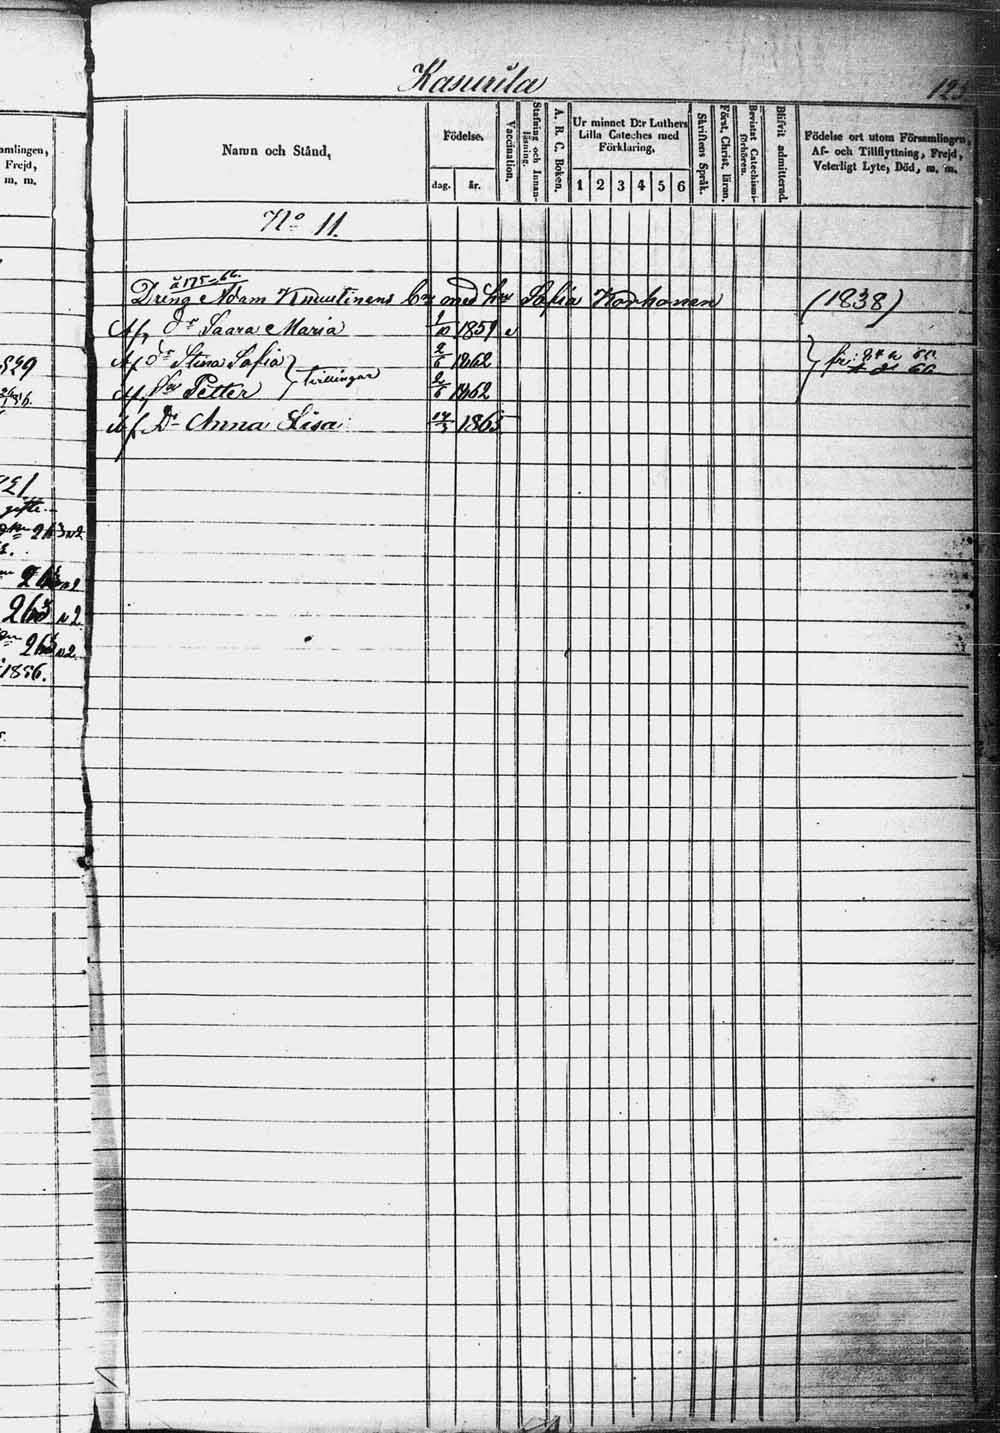 Kasurila
123
amlingen,
Frejd,
m. m.
Namn och Stånd,
Födelse.
dag. år.
Vaccination.
Stafning och Innan-läsning.
A. B. C. Boken.
Ur minnet D:r Luthers
Lilla Cateches med
Förklaring.
1 2 3 4 5 6
Skriftens Språk.
Först. Christ. läran.
Bevistat Catechismi-förhören.
Blifvit admitterad.
Födelse ort utom Församlingen,
Af- och Tillflyttning, Frejd,
Veterligt Lyte, Död, m. m.
No 11.
å 175 66.
Dreng Adam Knuutinens barn med hu Sofia Korhonen (1838)
Af, Dr Saara Maria 1/10 1859
Af Dr Stina Sofia 2/6 1862
Tvillingar
Af, Son Petter 2/6 1862
Af Dr Anna Lisa 1865
gifte
263 n2
263 n2
263 n2
1856.